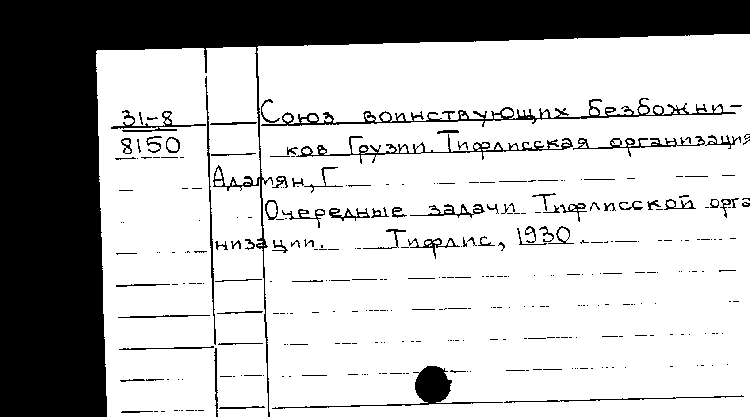 31-8
8150
Союз воинствующих безбожни-
ков Грузии. Тифлисская организация
Адамян, Г.
Очередные задачи Тифлисской орга
низации. Тифлис, 1930.